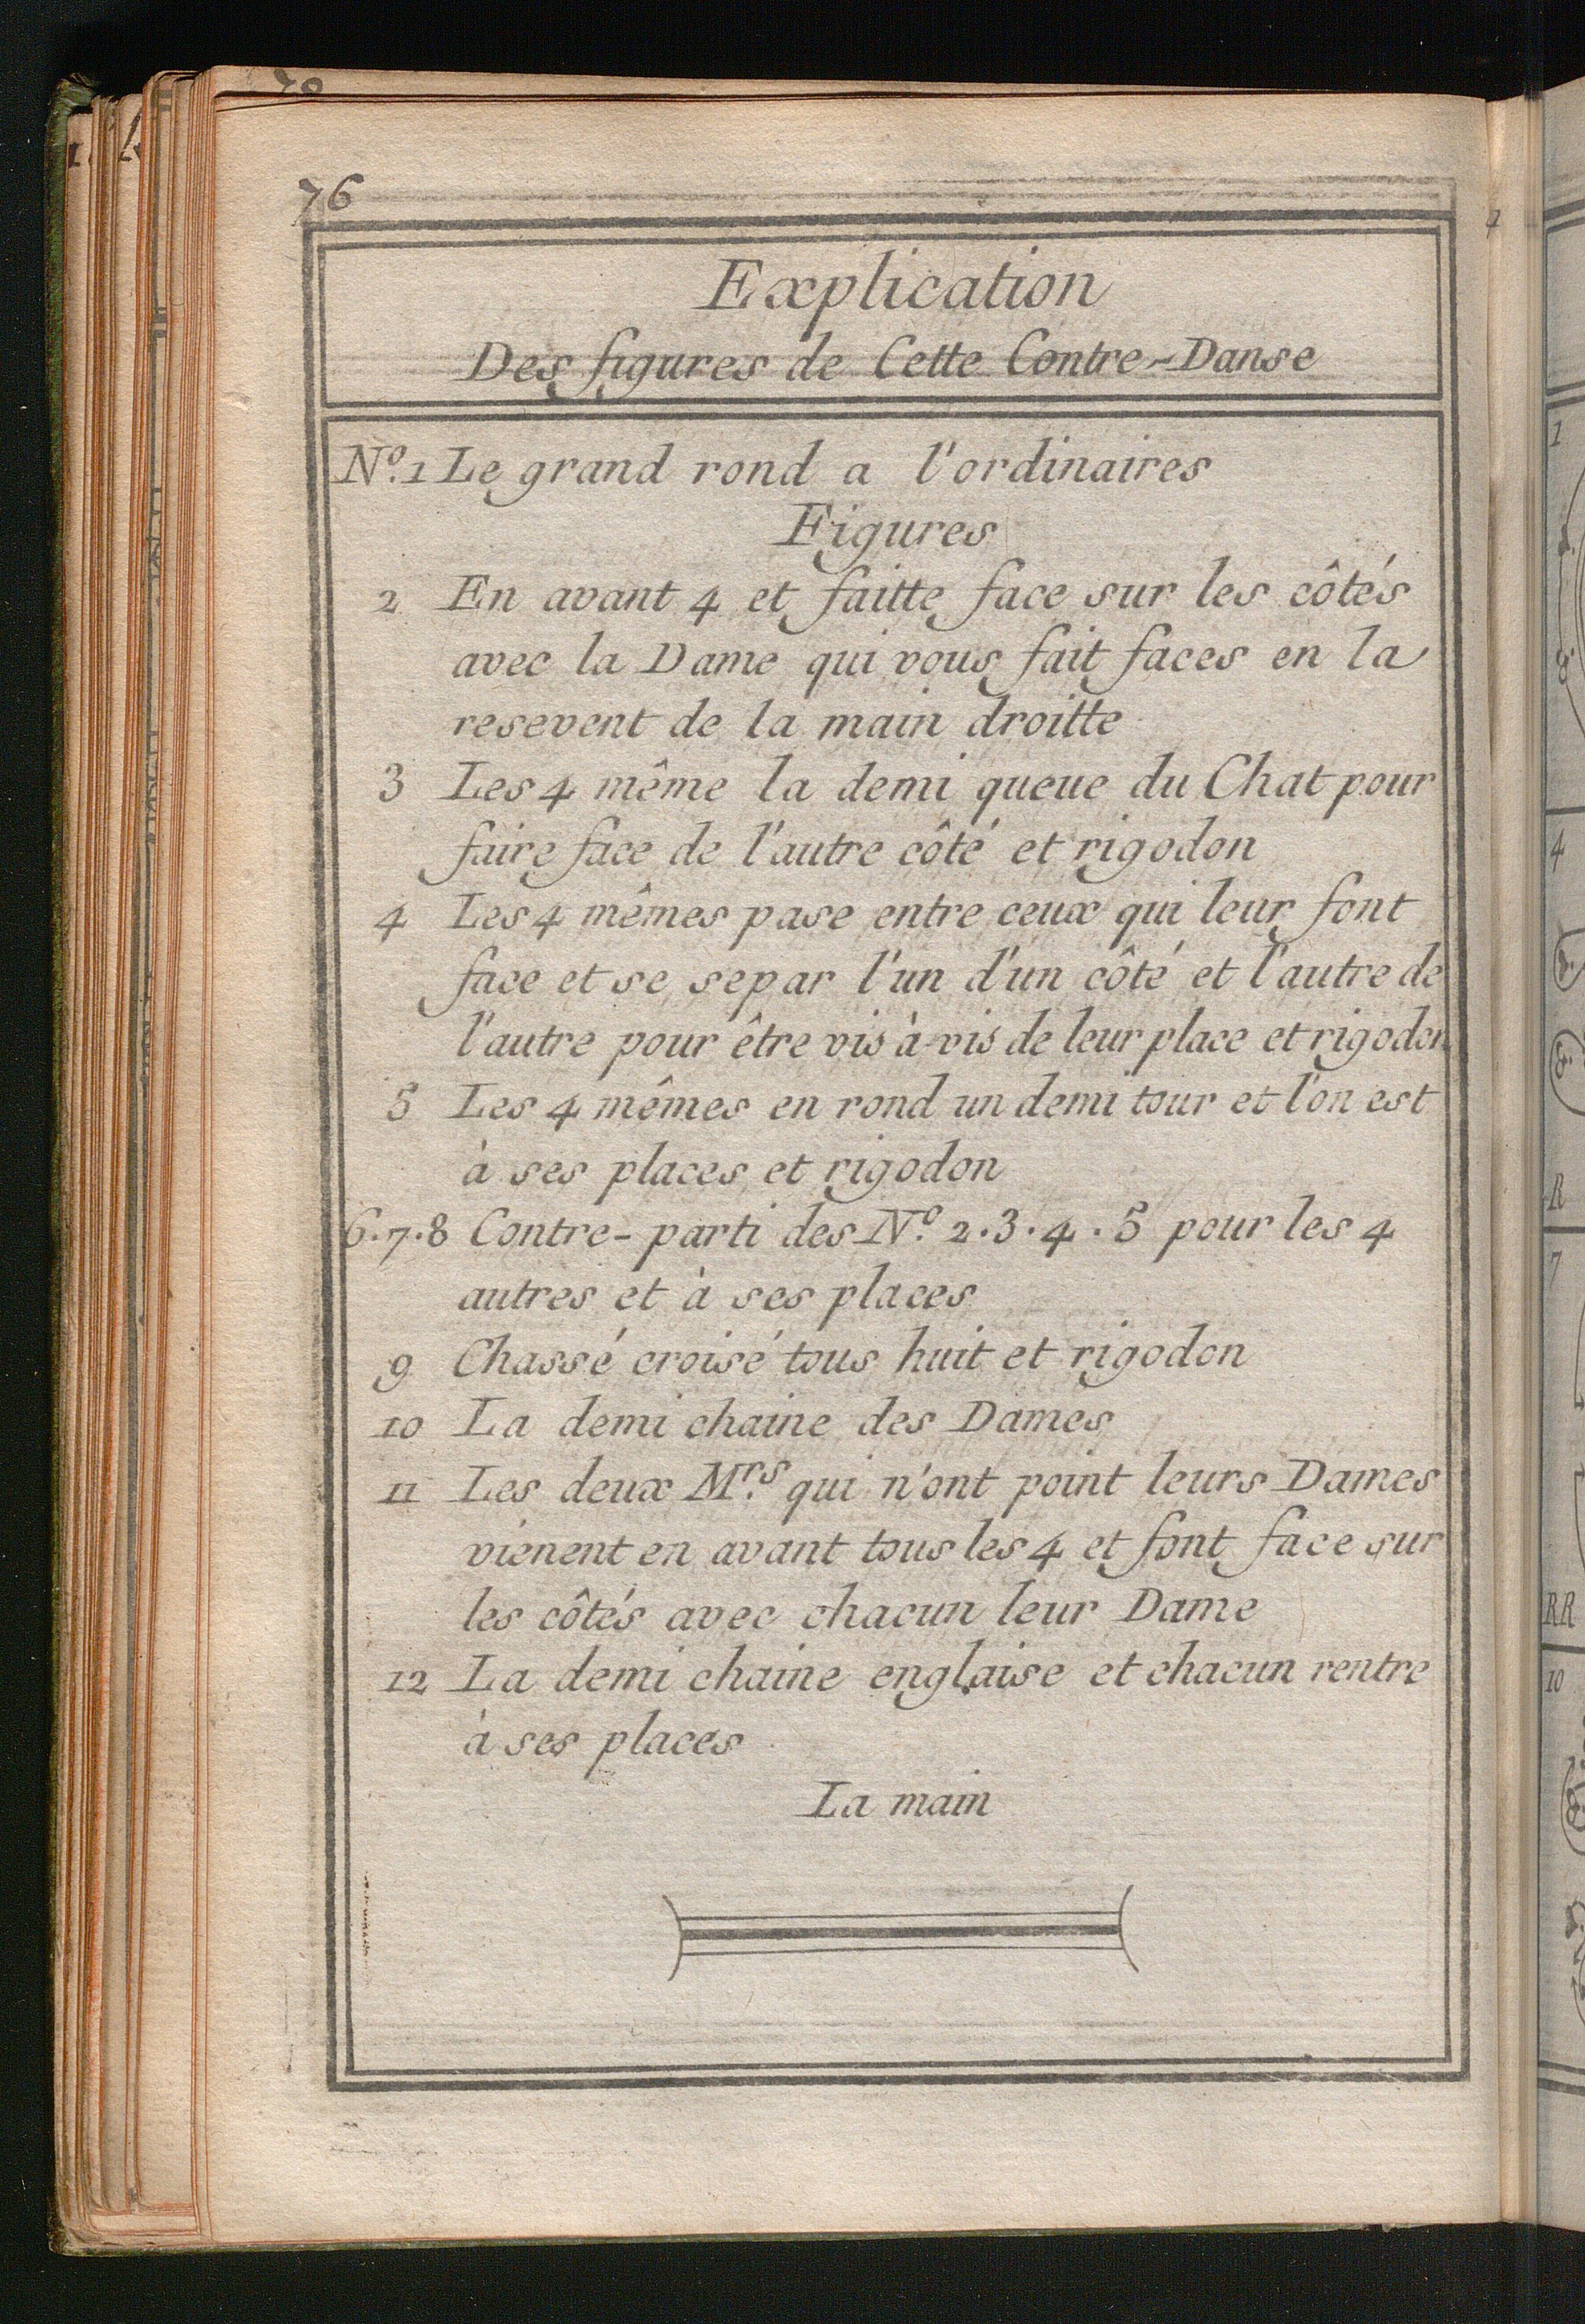 76
Explication
Des figures de Cette Contre-Danse
N.º 1 Le grand rond a l'ordinaires
Figures
2 En avant 4 et faitte face sur les côtés
avec la Dame qui vous fait faces en la
resevent de la main droitte
3 Les 4 même la demi queue du Chat pour
faire face de l'autre côté et rigodon
4 Les 4 mêmes pase entre ceux qui leur font
face et se separ l'un d'un côté et l'autre de
l'autre pour être vis à-vis de leur place et rigodon
5 Les 4 mêmes en rond un demi tour et l'on est
à ses places et rigodon
6.7.8 Contre-parti des N.º 2.3.4.5 pour les 4
autres et à ses places
9 Chassé croisé tous huit et rigodon
10 La demi chaine des Dames
11 Les deux M.rs qui n'ont point leurs Dames
vienent en avant tous les 4 et font face sur
les côtés avec chacun leur Dame
12 La demi chaine englaise et chacun rentre
à ses places
La main
1
4
R
7
RR
10